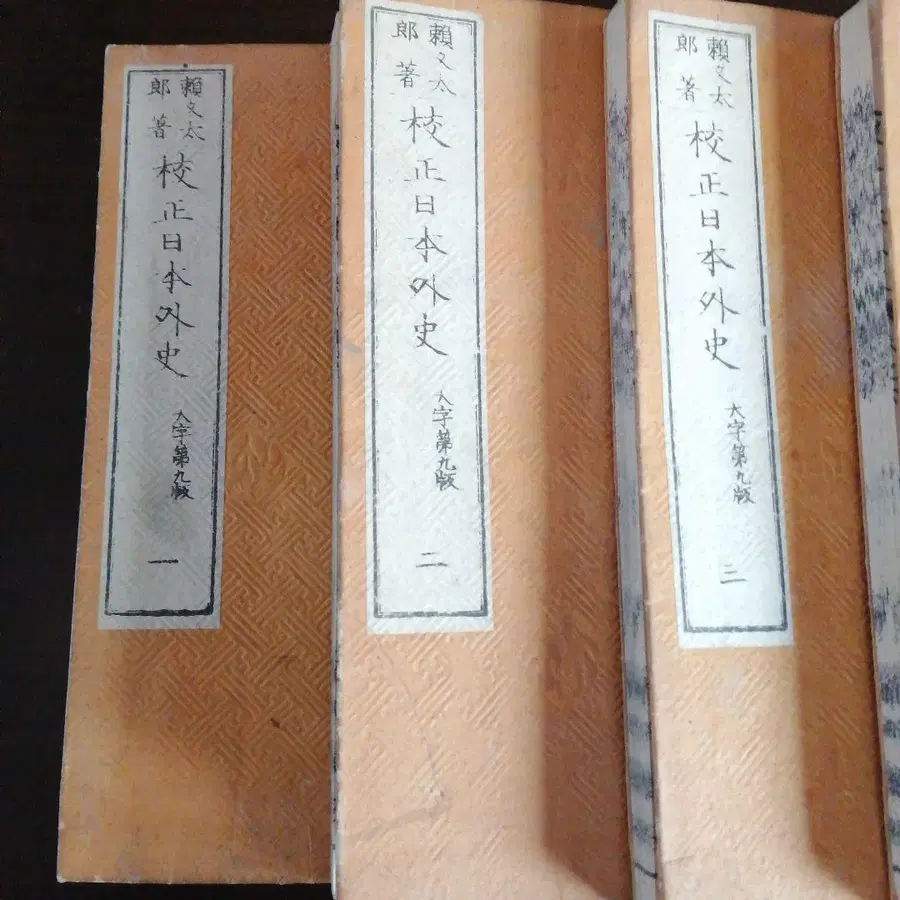 賴久太
郎著
校正日本外史
大字第九版
一
賴久太
郎著
校正日本外史
大字第九版
二
賴久太
郎著
校正日本外史
大字第九版
三